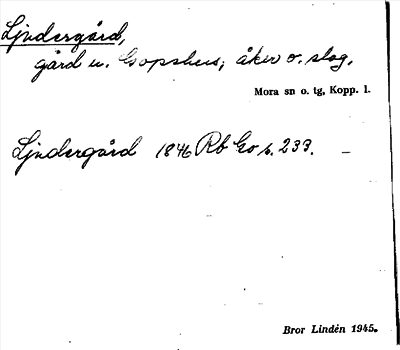 Ljndergård,
gård u. Gopshus; åker o. slog.
Mora sn o. tg, Kopp. l.
Ljndergård 1846 Rb Go s. 233. –
Bror Lindén 1945.